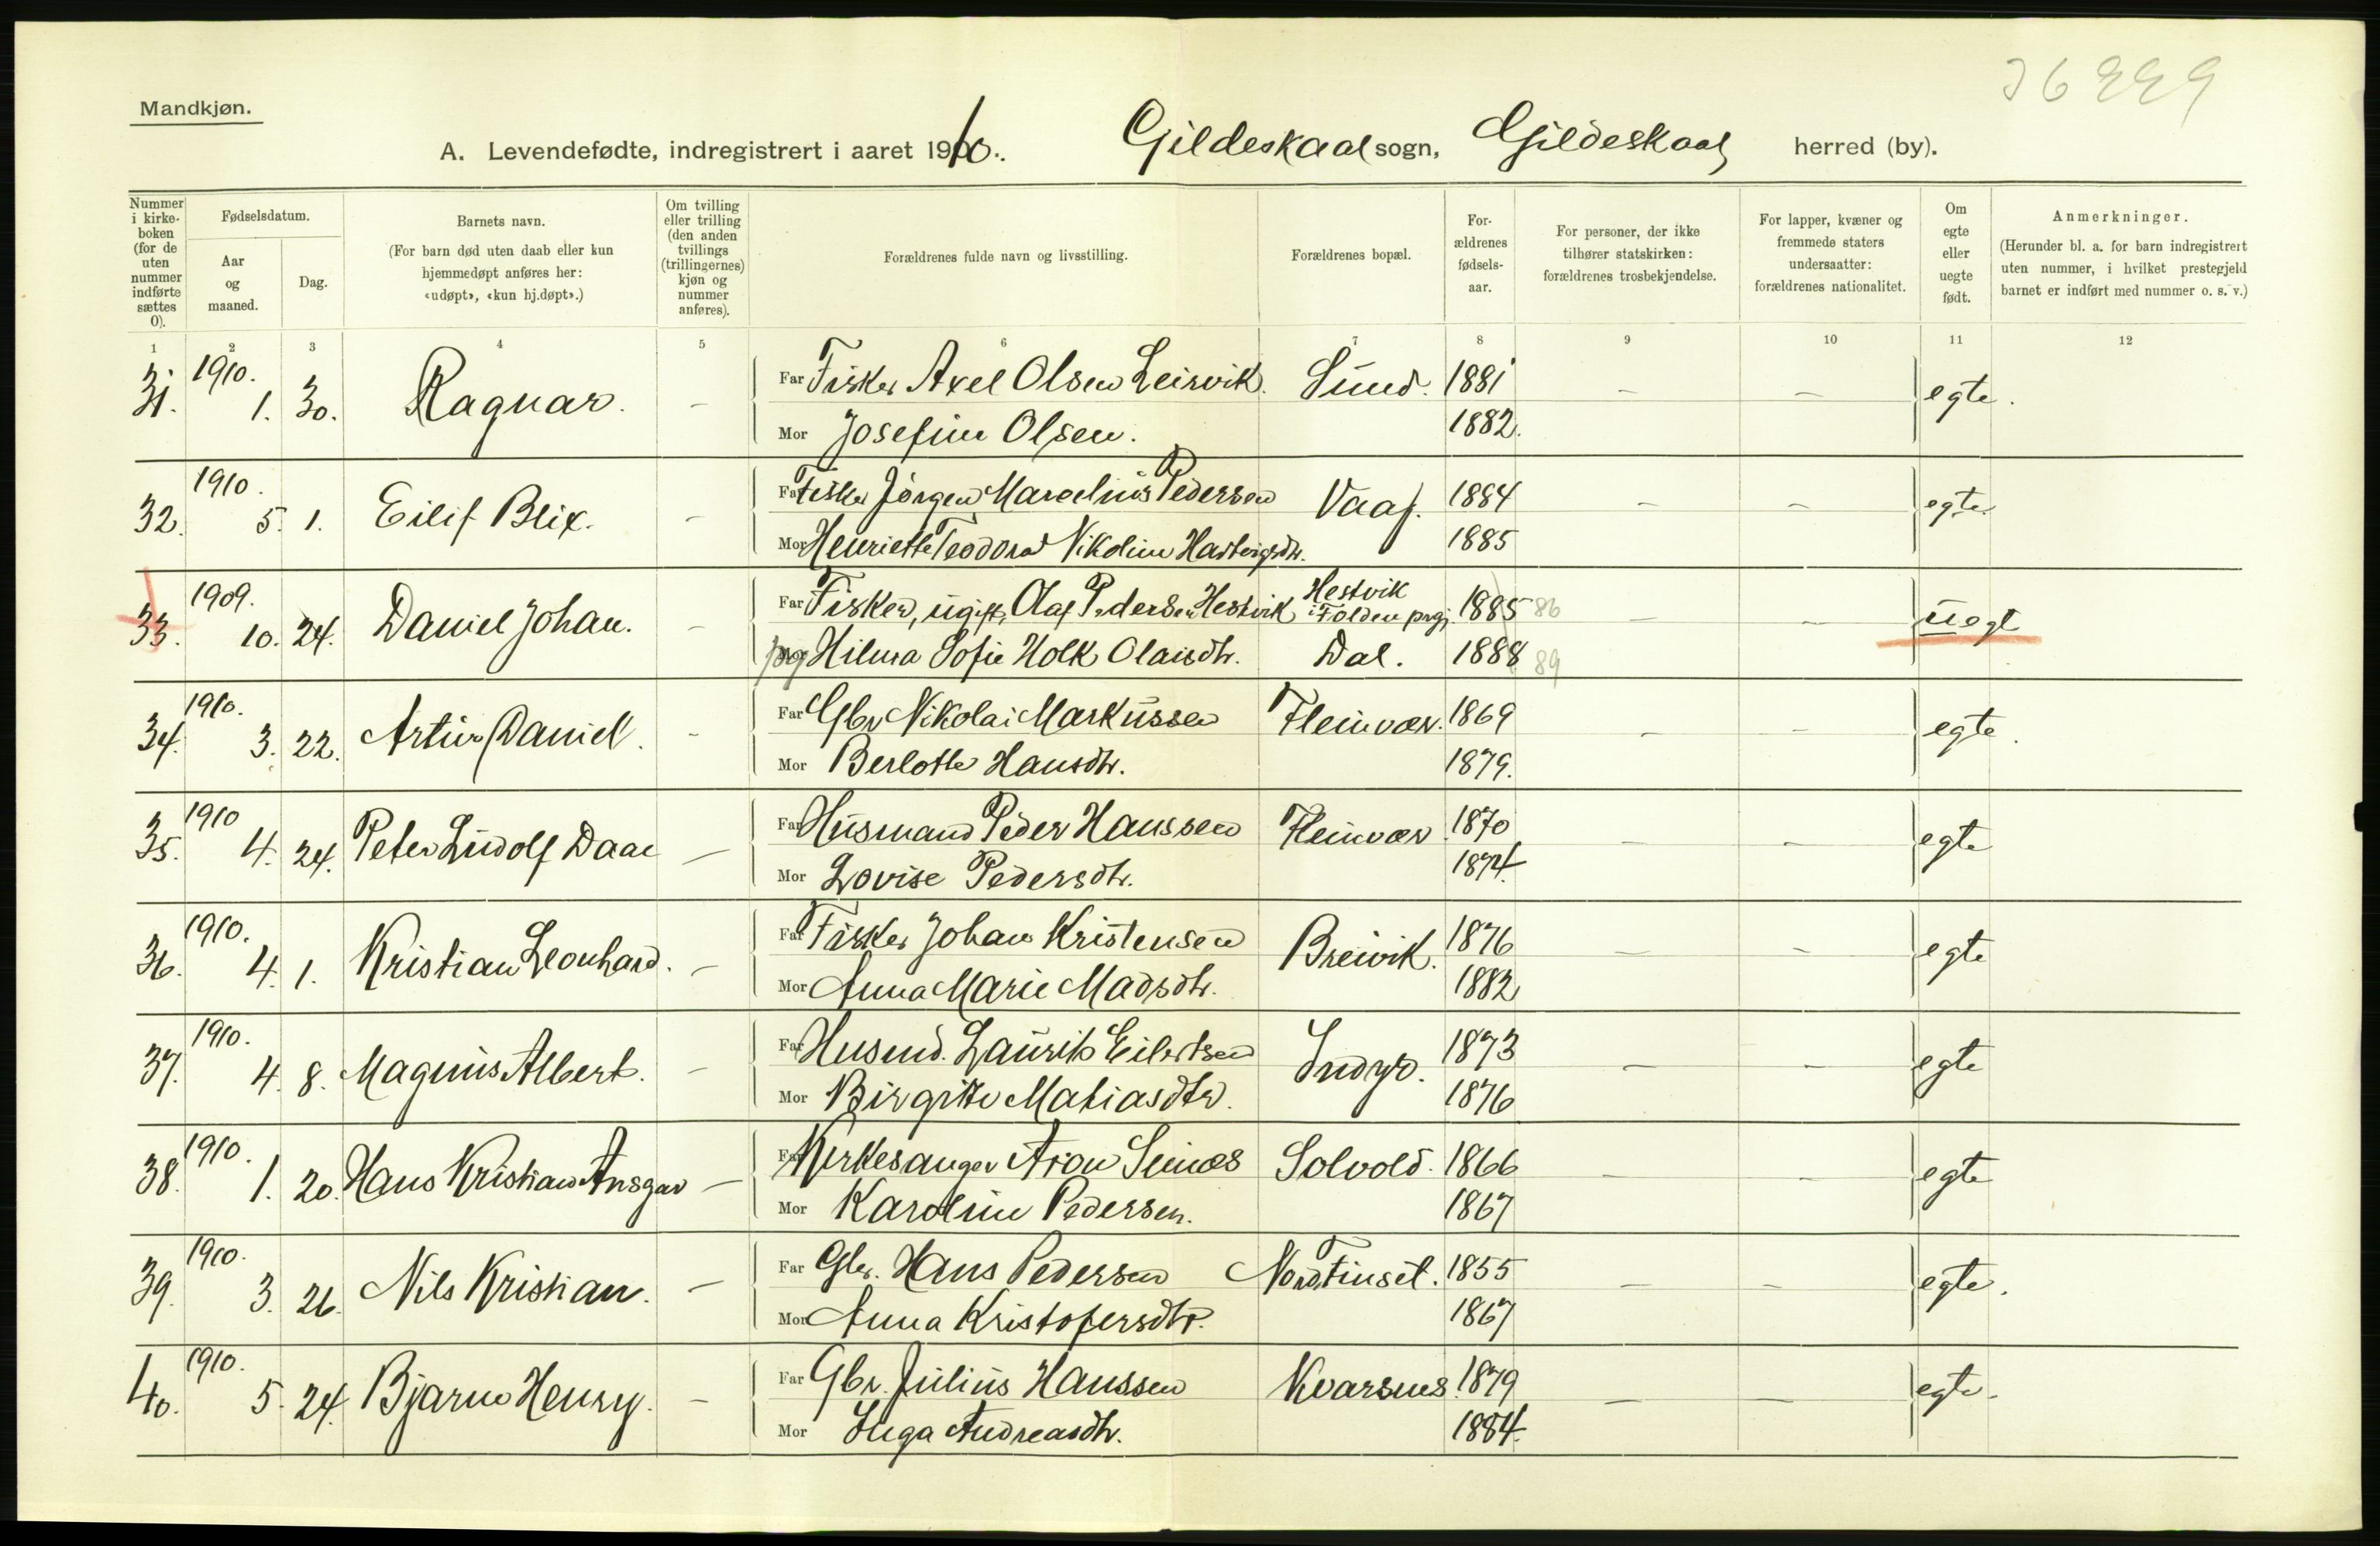 Mandkjøn.
A. Levendefødte, indregistrert i aaret 1910. Gildeskaal sogn, Gildeskaal herred (by).
Nummer i kirke-boken (for de uten nummer indførte sættes 0).
Fødselsdatum.
Aar og maaned.
Dag.
Barnets navn.
(For barn død uten daab eller kun hjemmedøpt anføres her: «udøpt», «kun hj.døpt».)
Om tvilling eller trilling (den anden tvillings (trillingernes) kjøn og nummer anføres).
Forældrenes fulde navn og livsstilling.
Forældrenes bopæl.
For-ældrenes fødsels-aar.
For personer, der ikke tilhører statskirken: forældrenes trosbekjendelse.
For lapper, kvæner og fremmede staters undersaatter: forældrenes nationalitet.
Om egte eller uegte født.
Anmerkninger.
(Herunder bl. a. for barn indregistrert uten nummer, i hvilket prestegjeld barnet er indført med nummer o. s. v.)
1 2 3 4 5 6 7 8 9 10 11 12
31. 1910. 1. 30. Ragnar. - Far Fisker Axel Olsen Leirvik. Sund. 1881 - - egte.
Mor Josefine Olsen. 1882.
32. 1910. 5. 1. Eilif Blix. - Far Fisker Jørgen Marselius Pedersen Vaag. 1884 - - egte.
Mor Henriette Teodora Nikoline Hartvigsdtr. 1885
33. 1909. 10. 24. Daniel Johan. - Far Fisker, ugift, Olaf Pedersen Hestvik Hestvik i Folden prgj. 1885 86 - - uegt
Mor pig Hilma Sofie Holk Olaisdtr. Dal. 1888 89
34. 1910. 3. 22. Artur Daniel. - Far Gbr Nikolai Markussen Fleinvær. 1869 - - egte.
Mor Berlotte Hansdtr. 1879.
35. 1910 4. 24. Peter Ludolf Daae - Far Husmand Peder Hanssen Fleinvær 1870 - - egte
Mor Lovise Pedersdtr. 1874.
36. 1910. 4. 1. Kristian Leonhard. - Far Fisker Johan Kristensen Breivik. 1876 - - egte
Mor Anna Marie Madsdtr. 1882
37. 1910. 4. 8. Magnus Albert. - Far Husmd. Laurits Eilertsen Indyr. 1873 - - egte
Mor Birgitte Matiasdtr. 1876
38. 1910. 1. 20. Hans Kristian Ansgar - Far Kirkesanger Aron Seines Solvold. 1866 - - egte
Mor Karoline Pedersen. 1867
39. 1910. 3. 26. Nils Kristian. - Far Gbr. Hans Pedersen Nordfinset. 1855 - - egte.
Mor Anna Kristofersdtr. 1867
40. 1910. 5. 24. Bjarne Henry. - Far Gbr. Julius Hanssen Kvarsnes. 1879 - - egte.
Mor Inga Andreasdtr. 1884.